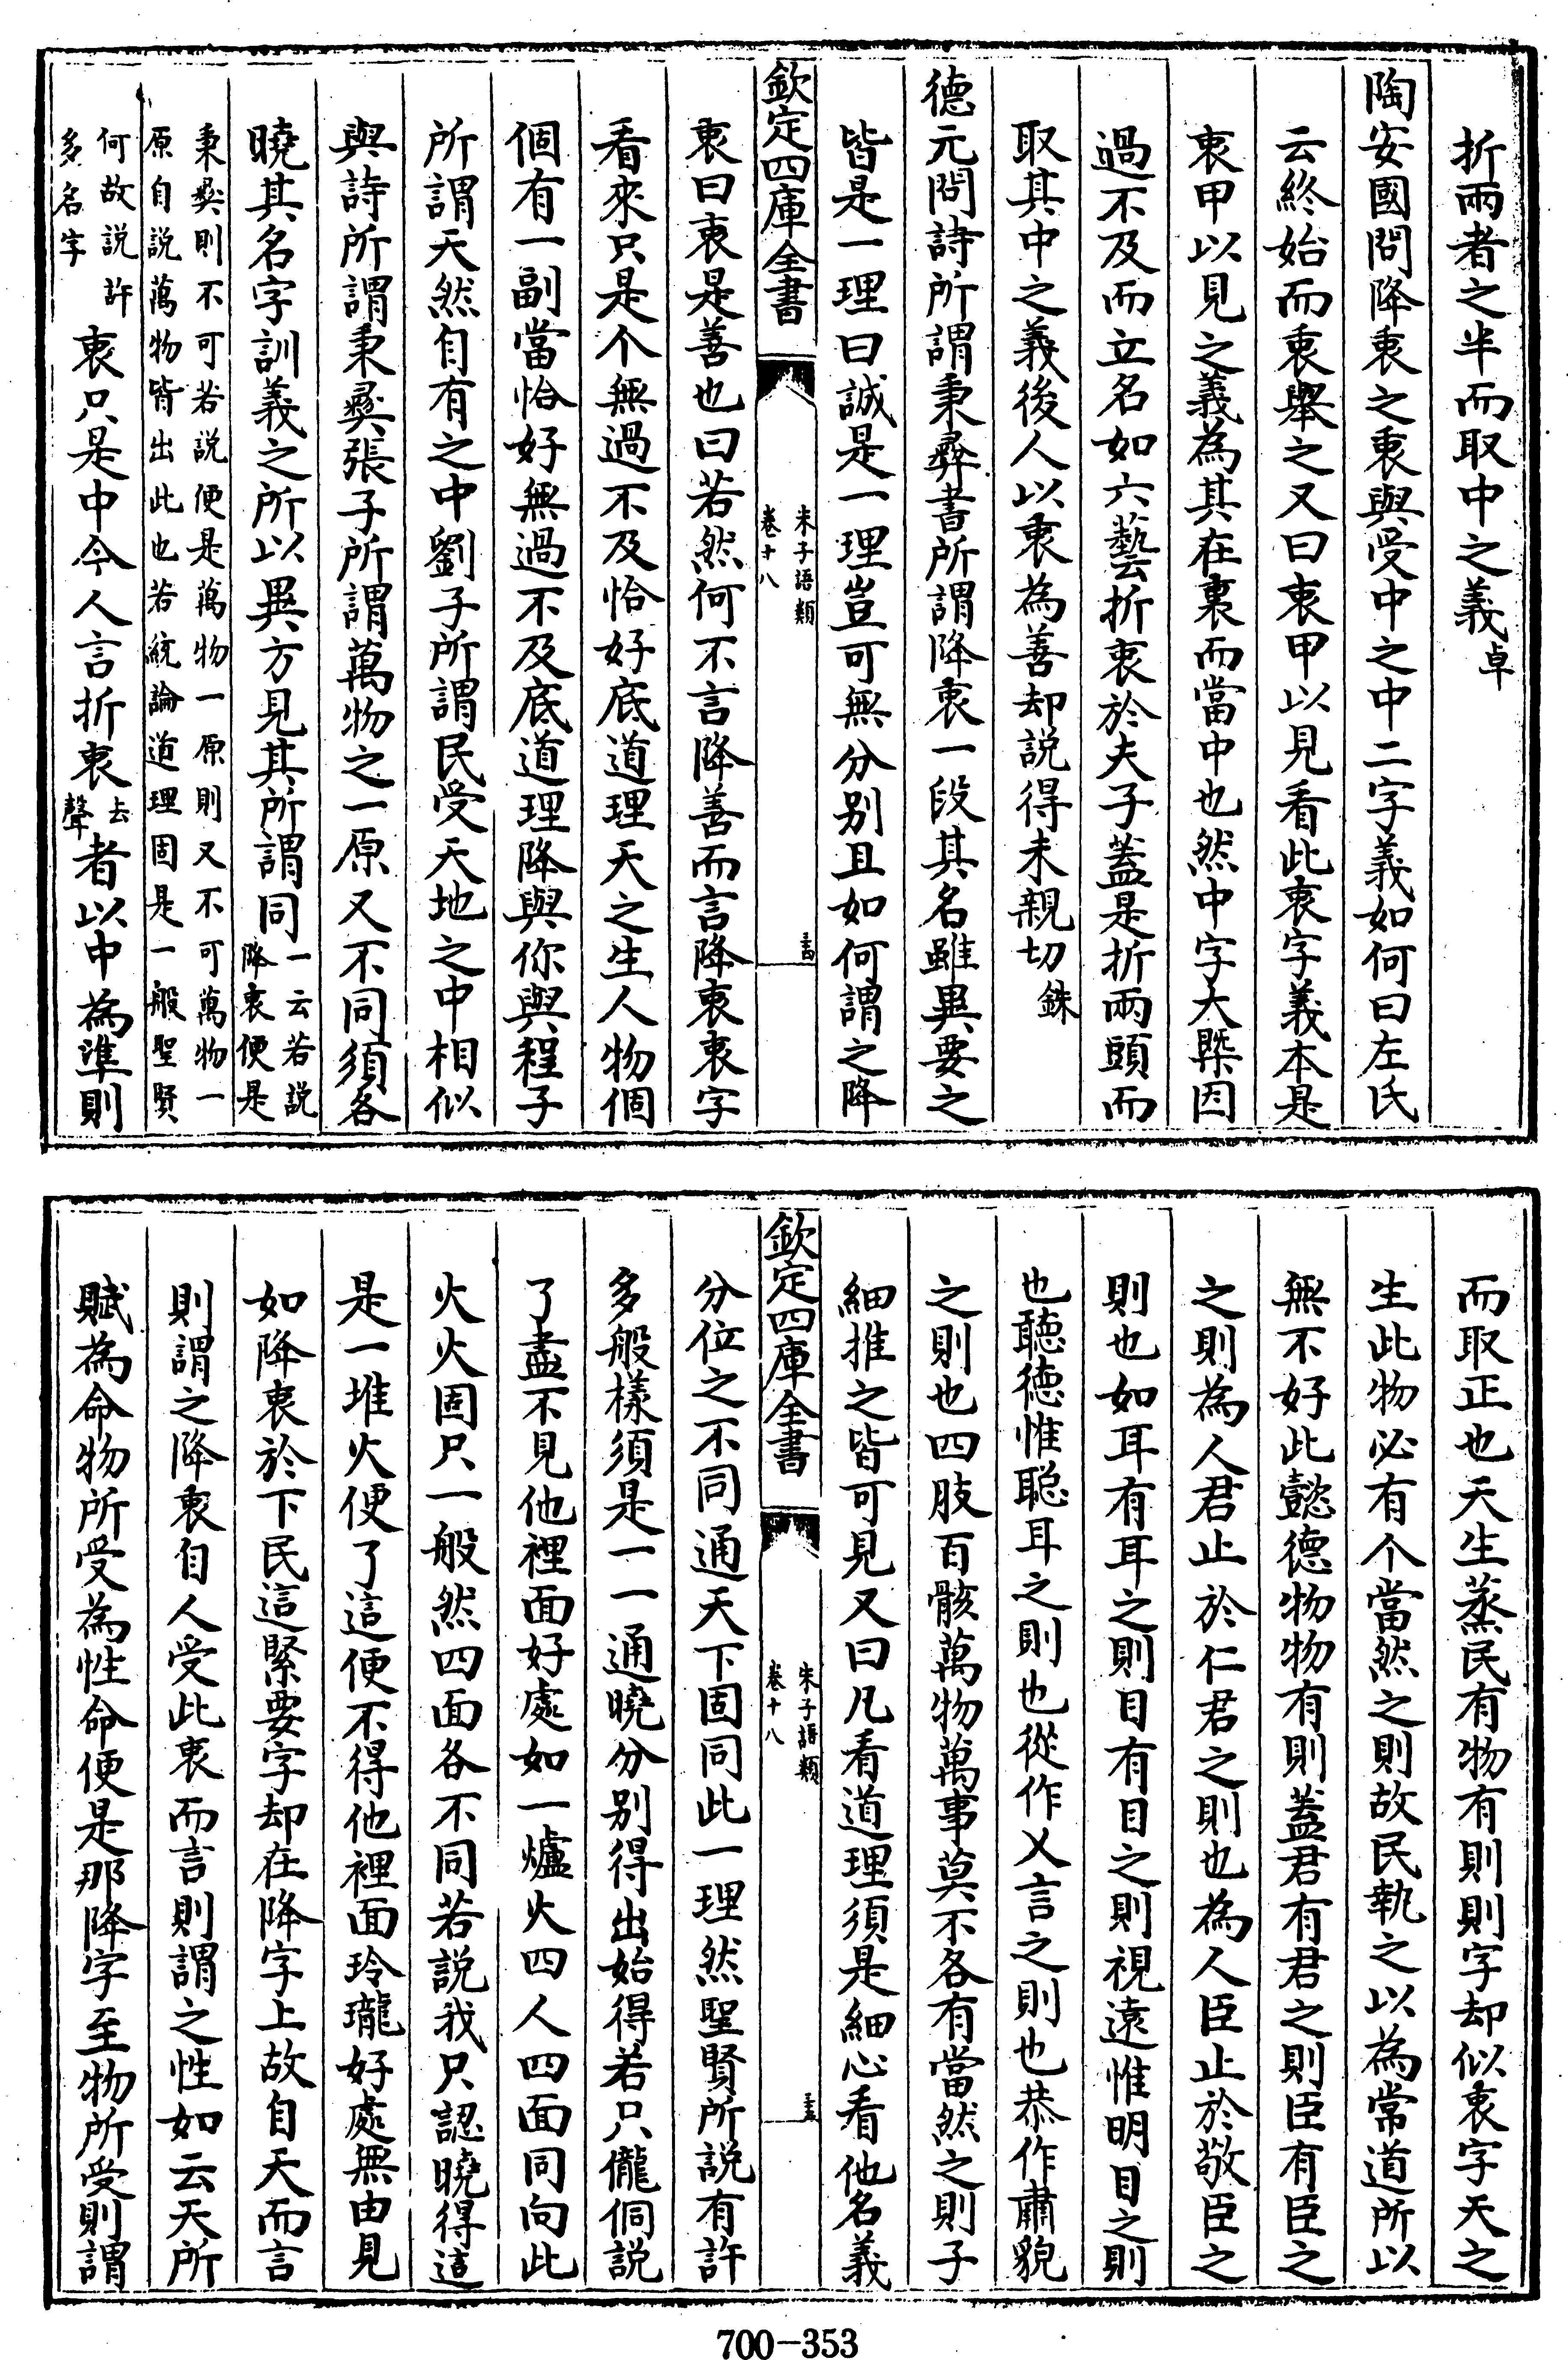 折兩者之半而取中之義卓
陶安國問降衷之衷與受中之中二字義如何曰左氏
云終始而衷舉之又曰衷甲以見看此衷字義本是
衷甲以見之義為其在裏而當中也然中字大槩因
過不及而立名如六藝折衷於夫子蓋是折兩頭而
取其中之義後人以衷為善却説得未親切銖
德元問詩所謂秉彞書所謂降衷一段其名雖異要之
皆是一理曰誠是一理豈可無分别且如何謂之降
欽定四庫全書
朱子語類
卷十八
衷曰衷是善也曰若然何不言降善而言降衷衷字
看來只是个無過不及恰好底道理天之生人物個
個有一副當恰好無過不及底道理降與你與程子
所謂天然自有之中劉子所謂民受天地之中相似
與詩所謂秉彞張子所謂萬物之一原又不同須各
曉其名字訓義之所以異方見其所謂同一云若説
降衷便是
秉彞則不可若説便是萬物一原則又不可萬物一
原自説萬物皆出此也若統論道理固是一般聖賢
何故説許
多名字
衷只是中今人言折衷去聲者以中為準則
而取正也天生蒸民有物有則則字却似衷字天之
生此物必有个當然之則故民執之以為常道所以
無不好此懿德物物有則蓋君有君之則臣有臣之
之則為人君止於仁君之則也為人臣止於敬臣之
則也如耳有耳之則目有目之則視遠惟明目之則
也聽德惟聰耳之則也從作乂言之則也恭作肅貌
之則也四肢百骸萬物萬事莫不各有當然之則子
細推之皆可見又曰凡看道理須是細心看他名義
欽定四庫全書
朱子語類
卷十八
分位之不同通天下固同此一理然聖賢所説有許
多般樣須是一一通曉分别得出始得若只儱侗説
了盡不見他裡面好處如一爐火四人四面同向此
火火固只一般然四面各不同若説我只認曉得這
是一堆火便了這便不得他裡面玲瓏好處無由見
如降衷於下民這緊要字却在降字上故自天而言
則謂之降衷自人受此衷而言則謂之性如云天所
賦為命物所受為性命便是那降字至物所受則謂
700-353